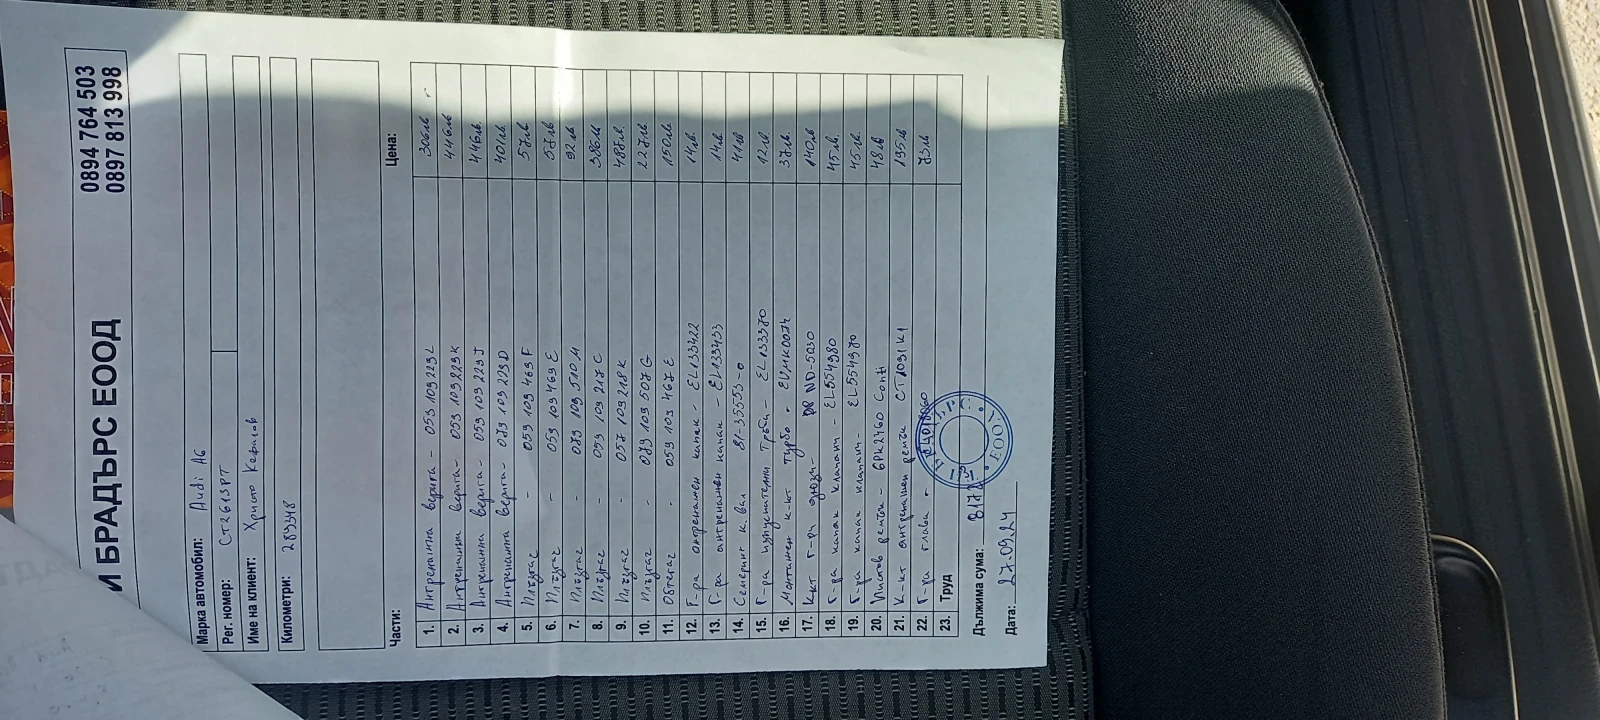 И БРАДЪРС ЕООД
0894 764 503
0897 813 998
Марка автомобил: Audi A6
Рег. номер: СТ2613РТ
Име на клиент: Христо
Километри: 289348
Части: Цена:
1. Ангренажна верига - 059 109 229 L 306лв
2. Ангренажна верига - 059 109 229 K 446лв
3. Ангренажна верига - 059 109 229 J 446лв
4. Ангренажна верига - 079 109 229 D 401лв
5. Плъзгас - 059 109 469 F 57лв
6. Плъзгас - 059 109 469 E 57лв
7. Плъзгас - 079 109 510 M 92лв
8. Плъзгас - 059 109 217 C 386лв
9. Плъзгас - 057 109 218 K 487лв
10. Плъзгас - 079 109 507 G 227лв
11. Обтегас - 059 109 467 E 150лв
12. Г-ра ангренажен капак - EL133422 14лв
13. Г-ра ангренажен капак - EL133433 14лв
14. Семеринг к. вал 81-35553-0 41лв
15. Г-ра изпускателни тръби - EL133370 12лв
16. Монтажен к-кт турбо - 37лв
17. Ккт г-ри дюзи - ND-5030 140лв
18. Г-ра капак клапани - EL554980 45лв
19. Г-ра капак клапани - EL554970 45лв
20. Пистов ремък - 6PK2460 Conti 48лв
21. К-кт ангренажен ремък CT1091K1 195лв
22. Г-ра глава - 73лв
23. Труд
Дължима сума:
Дата: 27.09.24
ЕООД